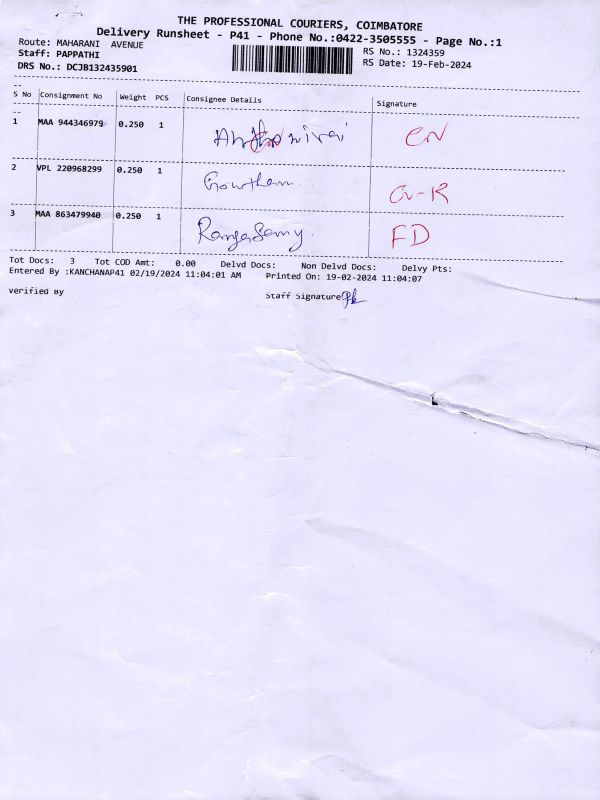 THE PROFESSIONAL COURIERS, COIMBATORE
Delivery Runsheet - P41 - Phone No.:0422-3505555 - Page No.:1
Route: MAHARANI AVENUE RS No.: 1324359
Staff: PAPPATHI RS Date: 19-Feb-2024
DRS No.: DCJB132435901
S No Consignment No Weight PCS Consignee Details Signature
1 MAA 944346979 0.250 1 CN
2 VPL 220968299 0.250 1 Gowtham
3 MAA 863479940 0.250 1 RangaSamy FD
Tot Docs: 3 Tot COD Amt: 0.00 Delvd Docs: Non Delvd Docs: Delvy Pts:
Entered By :KANCHANAP41 02/19/2024 11:04:01 AM Printed On: 19-02-2024 11:04:07
Verified By Staff Signature